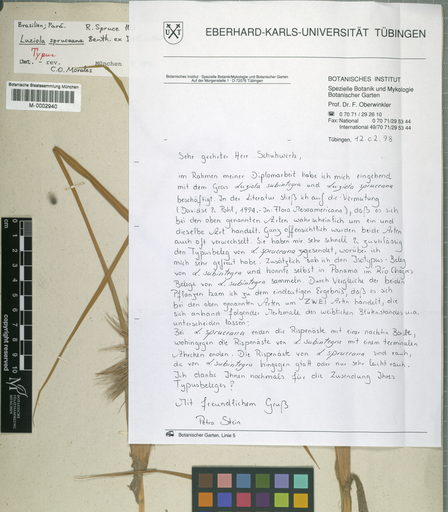 Brasilien, Pará.
R. Spruce
Luziola spruceana Benth. ex
Typus
Det. - rev.
München
C.O. Morales
Botanische Staatssammlung München
M-0002940
copyright reserved
EBERHARD-KARLS-UNIVERSITÄT TÜBINGEN
Botanisches Institut · Spezielle Botanik/Mykologie und Botanischer Garten
Auf der Morgenstelle 1 · D-72076 Tübingen
BOTANISCHES INSTITUT
Spezielle Botanik und Mykologie
Botanischer Garten
Prof. Dr. F. Oberwinkler
☎ 0 70 71 / 29 26 10
Fax: National 0 70 71/29 53 44
International 49/70 71/29 53 44
Tübingen, 12.02.98
Sehr geehrter Herr
im Rahmen meiner Diplomarbeit habe ich mich eingehend
mit dem Gras Luziola subintegra und Luziola spruceana
beschäftigt. In der Literatur stieß ich auf die Vermutung
(Davidse & Pohl, 1994. In: Flora Mesoamericana), daß es sich
bei den oben genannten Arten wahrscheinlich um ein und
dieselbe Art handelt. Ganz offensichtlich wurden beide Arten
auch oft verwechselt. Sie haben mir sehr schnell & zuverlässig
den Typusbeleg von L. spruceana zugesendet, worüber ich
mich sehr gefreut habe. Zusätzlich sah ich den Isotypus-Beleg
von L. subintegra und konnte selbst in Panama im Río Chagres
Belege von L. subintegra sammeln. Durch Vergleiche der beiden
Pflanzen kam ich zu dem eindeutigen Ergebnis, daß es sich
bei den oben genannten Arten um ZWEI Arten handelt, die
sich anhand folgender Merkmale des weiblichen Blütenstandes u.a.
unterscheiden lassen:
Bei L. spruceana enden die Rispenäste mit einer nackten Borste,
wohingegen die Rispenäste von L. subintegra mit einem terminalen
Ährchen enden. Die Rispenäste von L. spruceana sind rauh,
die von L. subintegra hingegen glatt oder nur sehr leicht rauh.
Ich danke Ihnen nochmals für die Zusendung Ihres
Typusbeleges!
Mit freundlichem Gruß
Petra Stein
Botanischer Garten, Linie 5